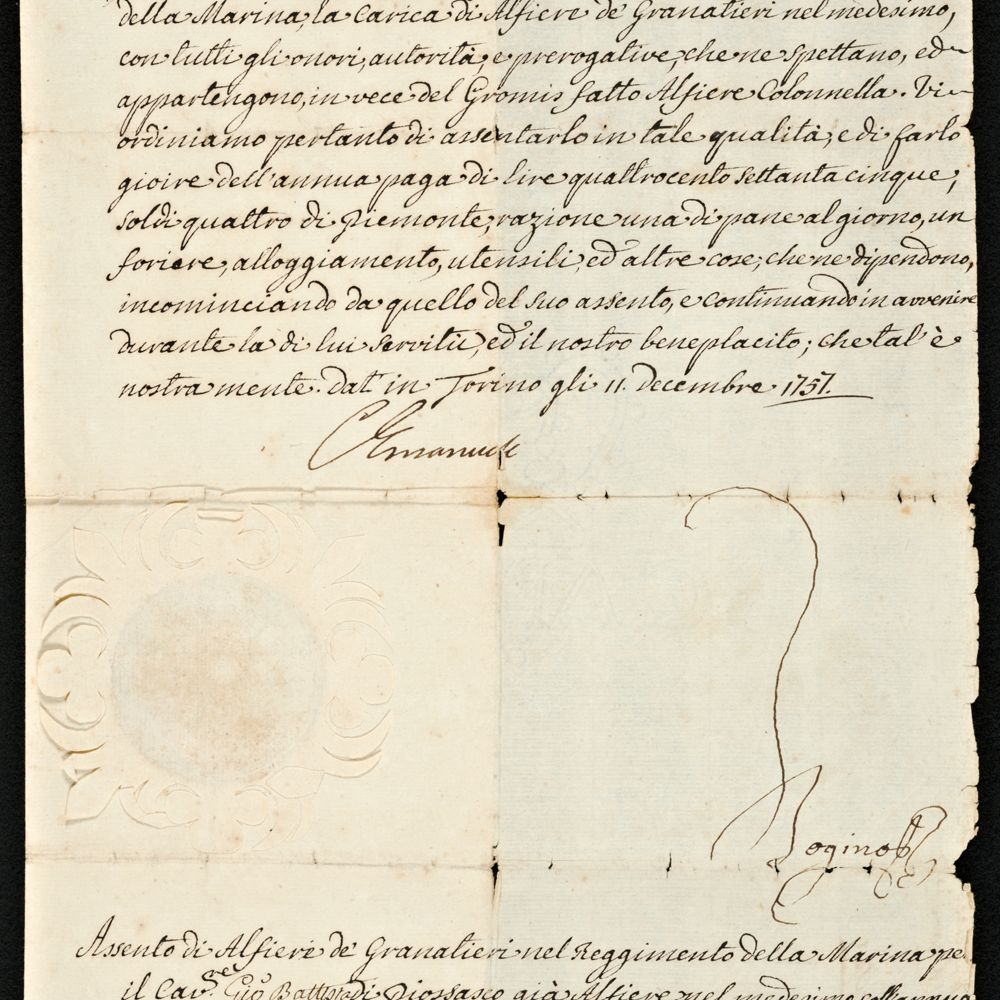 della Marina, la Carica di Alfiere de' Granatieri nel medesimo,
con tutti gli onori, autorità, e prerogative, che ne spettano, ed
appartengono, in vece del Gromis fatto Alfiere Colonnella. Vi
ordiniamo pertanto di assentarlo in tale qualità, e di farlo
gioire dell'annua paga di lire quattrocento settanta cinque,
soldi quattro di Piemonte, razione una di pane al giorno, un
foriere, alloggiamento, utensili, ed altre cose, che ne dipendono,
incominciando da quello del suo assento, e continuando in avvenire
durante la di lui servitù, ed il nostro beneplacito; che tal'è
nostra mente. Dat in Torino gli 11. Decembre 1757.
C Emanuele
Bogino
Assento di Alfiere de' Granatieri nel Reggimento della Marina pe
il Cav.re Gio Battista di Piossasco già Alfiere nel medesimo colla